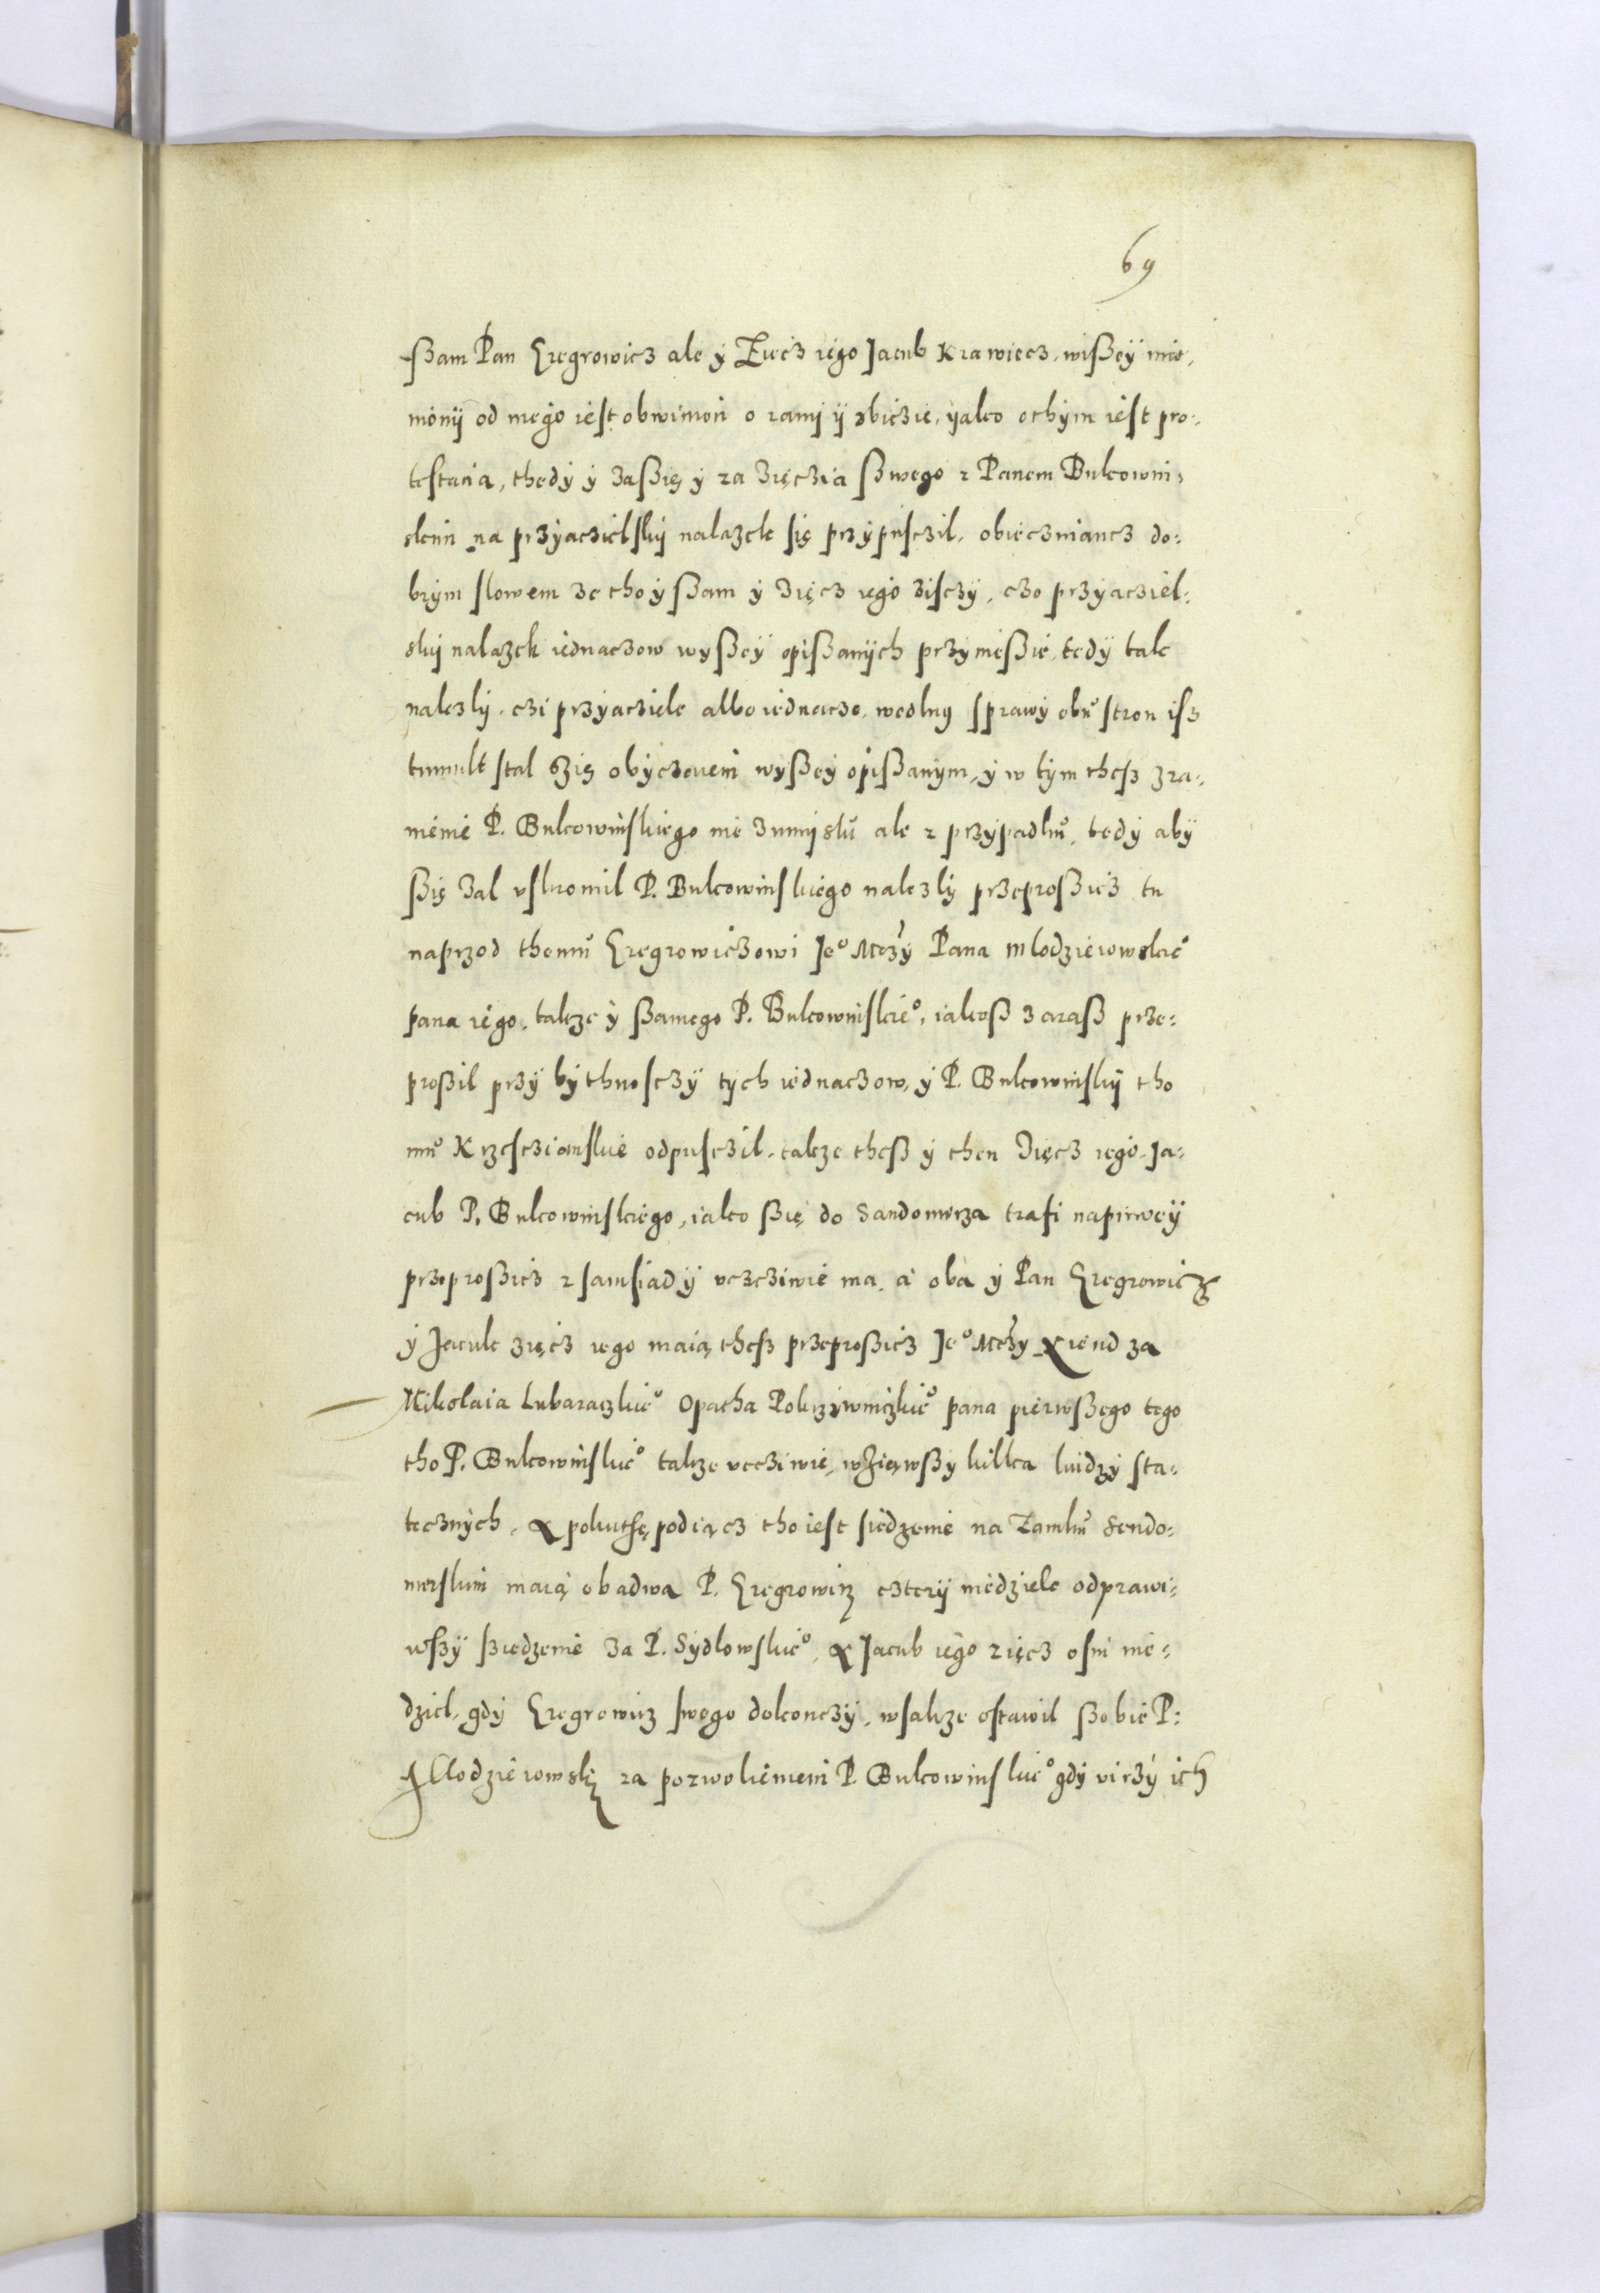 69
ßam Pan Gregrowicz ale y Zięcz iego Jacub Krawiecz, wißeÿ mie-
nionÿ od niego iest obwinion o ranÿ ÿ zbiczie, ÿako othÿm iest pro-
testacia, thedÿ ÿ zaßię ÿ za zięczia ßwego z Panem Bukowin-
skim na przÿaczielskÿ nalazek się przÿpusczil, obieczuiancz do-
brÿm slowem ze tho ÿ ßam ÿ zięcz iego zisczÿ, czo przÿacziel-
skÿ nalazek iednaczow wÿßeÿ opißanÿch przÿnießie, tedÿ tak
nalezlÿ, czi przÿacziele albo iednacze, wedlug sprawÿ obu stron isz
tumult stal ßię obÿczaiem wÿßeÿ opißanÿm, ÿ w tÿm thesz zra-
nienie P. Bukowinskiego nie z umÿslu ale z przÿpadku, tedÿ abÿ
ßię zal uskromil P. Bukowinskiego nalezlÿ przeproßicz tu
naprzod themu Gregrowiczowi Jeº Mczÿ Pana Mlodzieiowskieº
pana iego, takze ÿ ßamego P. Bukowinskieº, iakoß zaraß prze-
proßil przÿ bÿthnosczÿ tÿch iednaczow, ÿ P. Bukowinskÿ tho
mu Krzesczianskie odpusczil, takze theß ÿ then Zięcz iego Ja-
cub P. Bukowinskiego, iako ßię do Sandomirza trafi napirweÿ
przeproßicz z samsiadÿ uczcziwie ma, a oba ÿ Pan Gregrowicz
ÿ Jacub zięcz iego maią thesz przeproßicz Jeº Mczÿ Xiendza
Mikolaia Lubaraczkieº Opatha Pokrziwniczkieº pana pierwßego tego
tho P. Bukowinskieº takze uccziwie, wziąwßÿ kilka ludzÿ sta-
tecznÿch, A pokuthę podiącz tho iest siedzenie na Zamku Sendo-
mirskim maią obadwa P. Gregrowicz czterÿ niedziele odprawi-
wßÿ ßiedzenie za P. Sÿdlowskieº, A Jacub iego zięcz osm nie-
dziel, gdÿ Gregrowicz swego dokonczÿ, wsakze ostawil ßobie P:
Mlodzieiowskÿ za pozwolieniem P. Bukowinskieº gdÿ uirzÿ ich